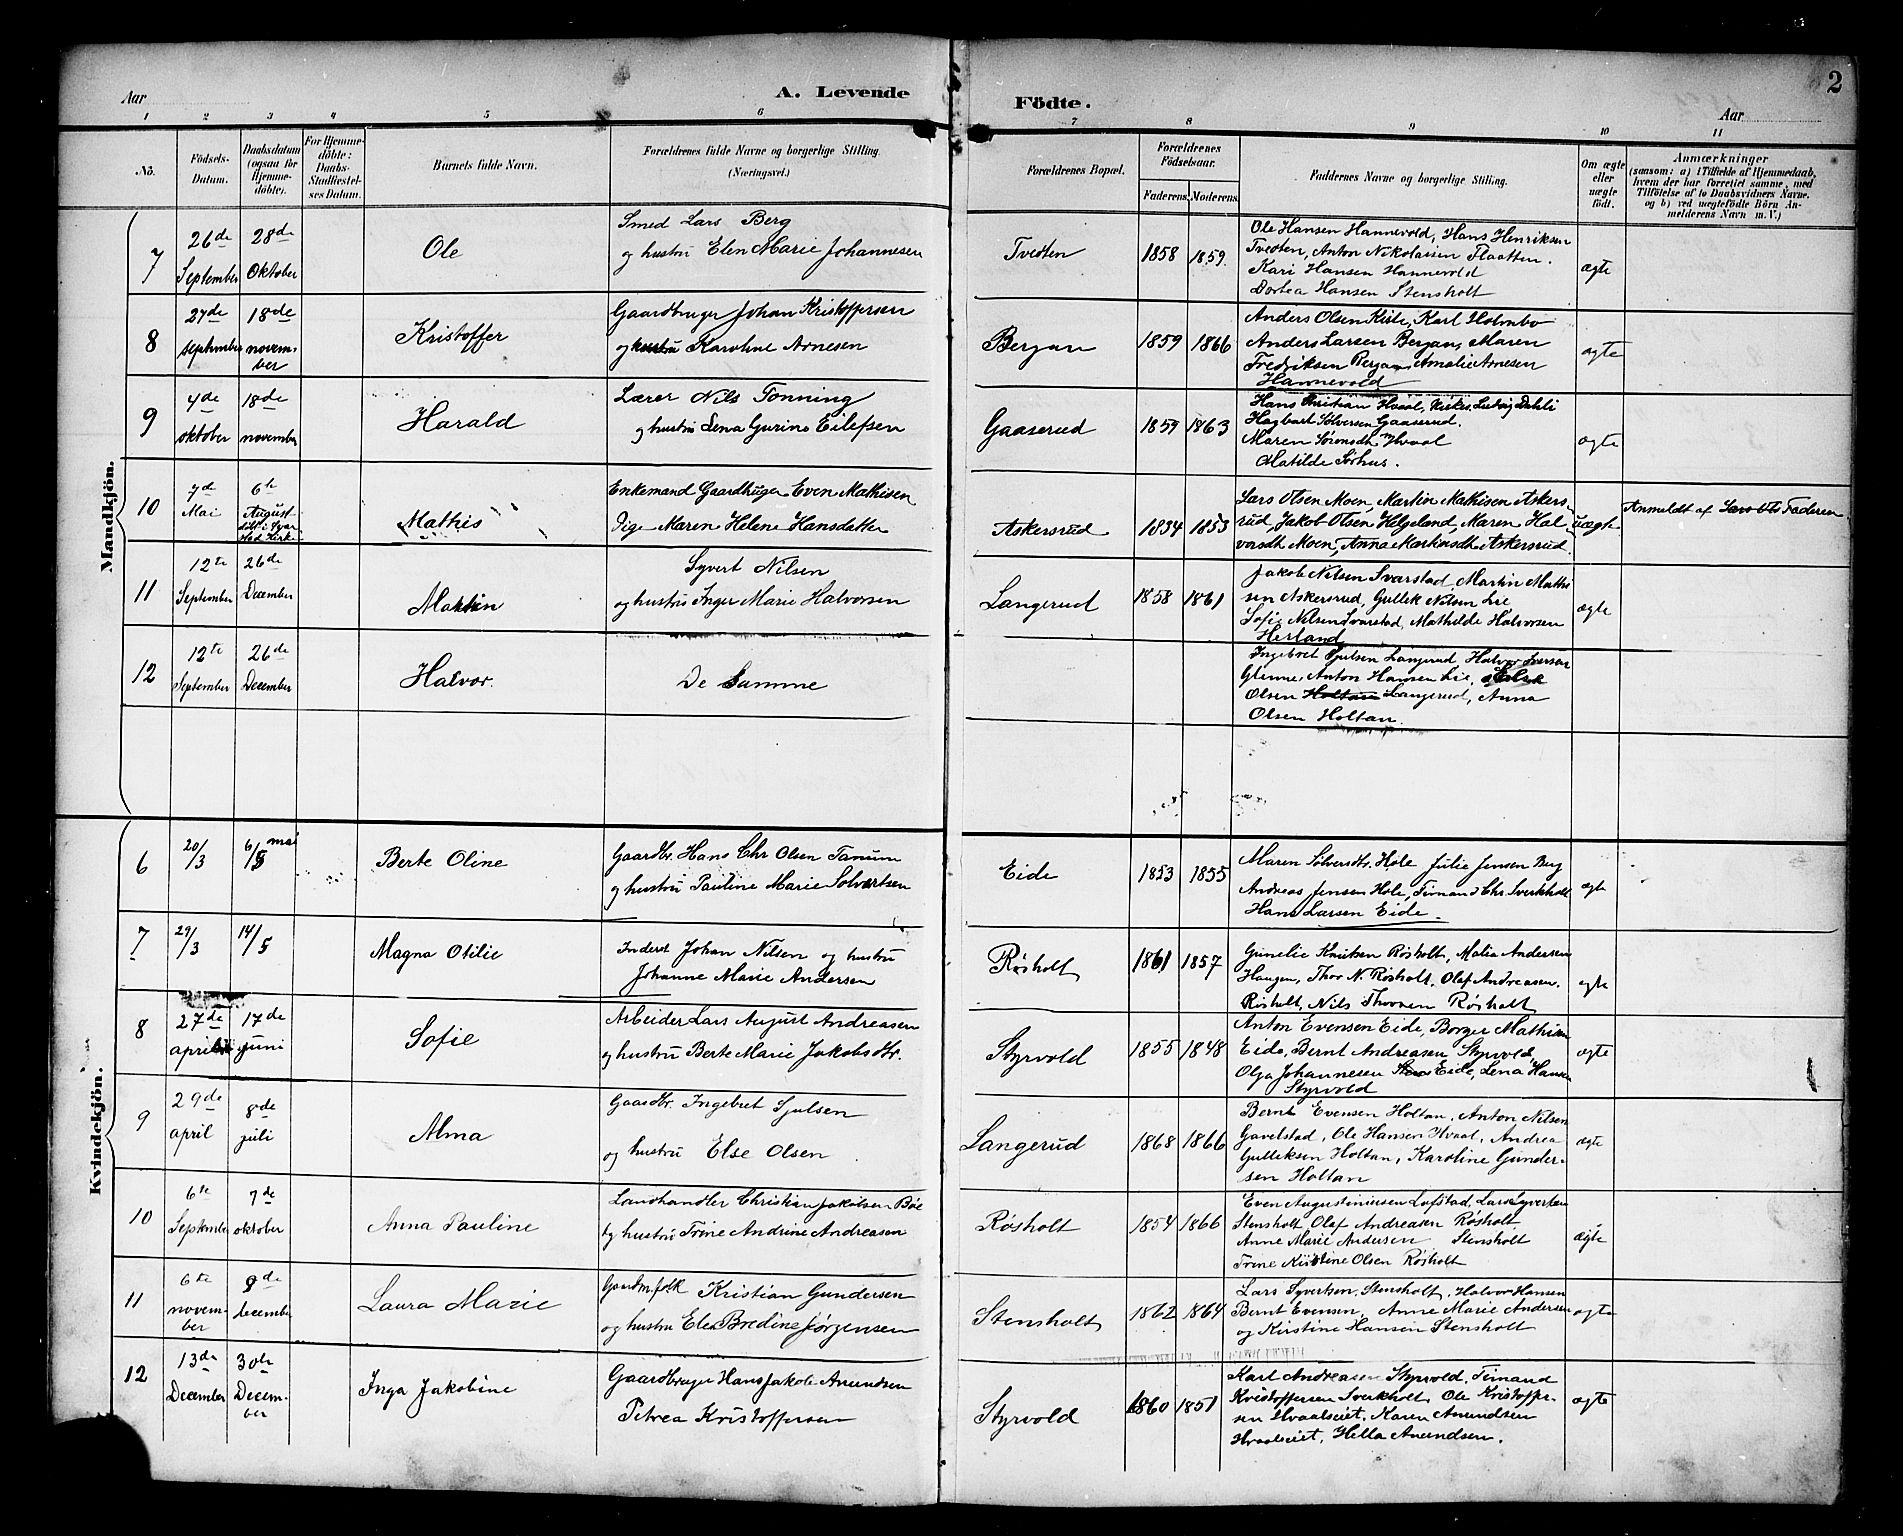 2
Aar
A. Levende
Födte.
Aar
1 2 3 4 5 6 7 8 9 10 11
No.
Födsels-
Datum.
Daabsdatum
(ogsaa for
Hjemme-
döbte).
For Hjemme-
döbte:
Daabs-
Stadfæstel-
ses Datum.
Barnets fulde Navn.
Forældrenes fulde Navne og borgerlige Stilling.
(Næringsvei.)
Forældrenes Bopæl.
Forældrenes
Födselsaar.
Faderens. Moderens.
Faddernes Navne og borgerlige Stilling.
Om ægte
eller
uægte
födt.
Anmærkninger
(saasom: a) i Tilfælde af Hjemmedaab,
hvem der har forrettet samme, med
Tilföielse af to Daabsvidners Navne.
og b) ved uægtefödte Börn An-
melderens Navn m. V.)
Mandkjön.
7
26de
September
28de
Oktober
Ole
Smed Lars Berg
og hustru Elen Marie Johannesen
Tvedten
1858 1859.
Ole Hansen Hannevold, Hans Henriksen
Tvedten, Anton Nikolaisen Flaatten.
Kari Hansen Hannevold
Dortea Hansen Stensholt
ægte
8
27de
september
18de
novem-
ber
Kristoffer
Gaardbruger Johan Kristoffersen
og hustru Karoline Arnesen
Bergan
1859 1866
Anders Olsen Kiste, Karl Holmbo
Anders Larsen Bergan, Maren
Fredriksen Bergan, Amalie Arnesen
Hannevold
ægte
9
4de
oktober
18de
november
Harald
Lærer Nils Tonning
og hustru Lena Gurine Eilefsen
Gaaserud
1859 1863
Hans Kristian Hvaal, Kirkes. Ludvig Dahli
Hagbart Sölversen Gaaserud.
Maren Sørensdtr Hvaal
Matilde Sørhus.
ægte
10
7de
Mai
6te
August
döbt i Svar
stad Kirke
Mathis
Enkemand Gaardbruger Even Mathisen
Pige Maren Helene Hansdatter
Askersrud
1834 1853
Lars Olsen Moen, Martin Mathisen Askers-
rud, Jakob Olsen Helgeland, Maren Hal-
vorsdtr Moen, Anna Martinsdtr Askersrud.
uægte
Anmeldt af Faderen
11
12te
September
26de
December
Martin
Syvert Nilsen
og hustru Inger Marie Halvorsen
Langerud
1858 1861
Jakob Nilsen Svarstad, Martin Mathi
sen Askersrud, Gullek Nilsen Lie
Sofie Nilsen Svarstad, Mathilde Halvorsen
Herland
ægte
12
12te
September
26de
December
Halvor.
De Samme
Ingebret Sjulsen Langerud, Halvor Iversen
Glenne, Anton Hansen Lie,
Olsen Holtan Langerud, Anna
Olsen Holtan.
Kvindekjön.
6
20/3
6/5 mai
Berte Oline
Gaardbr. Hans Chr Olsen Tanum
og hustru Pauline Marie Solvertsen
Eide
1853 1855
Maren Solversdtr. Hole Julie Jensen Berg
Andreas Jensen Hole, Finnand Chr. Sverkholt
Hans Larsen Eide.
ægte
7
29/3
14/5
Magna Otilie
Inderst Johan Nilsen og hustru
Johanne Marie Andersen
Røsholt
1861 1857
Gunelie Knutsen Røsholt, Malia Andersen
Haugen, Thor N. Røsholt, Olaf Andreasen.
Røsholt, Nils Thorsen Røsholt
ægte
8
27de
april
17de
juni
Sofie
Arbeider Lars August Andreasen
og hustru Berte Marie Jakobsdtr.
Styrvold
1855 1848
Anton Evensen Eide, Borger Mathisen
Eide, Bernt Andreasen Styrvold,
Olga Johannesen Eide, Lena Hansen
Styrvold
ægte
9
29de
april
8de
juli
Alma
Gaardbr. Ingebret Sjulsen
og hustru Else Olsen
Langerud
1868 1866
Bernt Evensen Holtan, Anton Nilsen
Gavelstad, Ole Hansen Hvaal, Andrea
Gulleksen Holtan, Karoline Gunder-
sen Holtan
ægte
10
6te
September
7de
oktober
Anna Pauline
Landhandler Christian Jakobsen Bøe
og hustru Trine Andrine Andreasen
Røsholt
1854 1866
Even Augustinusen Lofstad, Lars Syvertsen
Stensholt Olaf Andreasen Røsholt
Anne Marie Andersen Stensholt
Trine Kirstine Olsen Røsholt
ægte
11
6te
novem-
ber
9de
december
Laura Marie
Gaardmfolk Kristian Gundersen
og hustru Elen Bredine Jørgensen
Stensholt
1862 1864
Lars Syvertsen Stensholt, Halvor Hansen
Bernt Evensen, Anne Marie Andersen
og Kirstine Hansen Stensholt
ægte
12
13de
December
30te
Decem-
ber
Inga Jakobine
Gaardbruger Hans Jakob Amundsen
Petrea Kristoffersen
Styrvold
1860 1851
Karl Andreasen Styrvold, Finnand
Kristoffersen Sverkholt, Ole Kristoffer-
sen Hvaalseiet, Karen Amundsen
Hvaalseiet, Hella Amundsen.
ægte